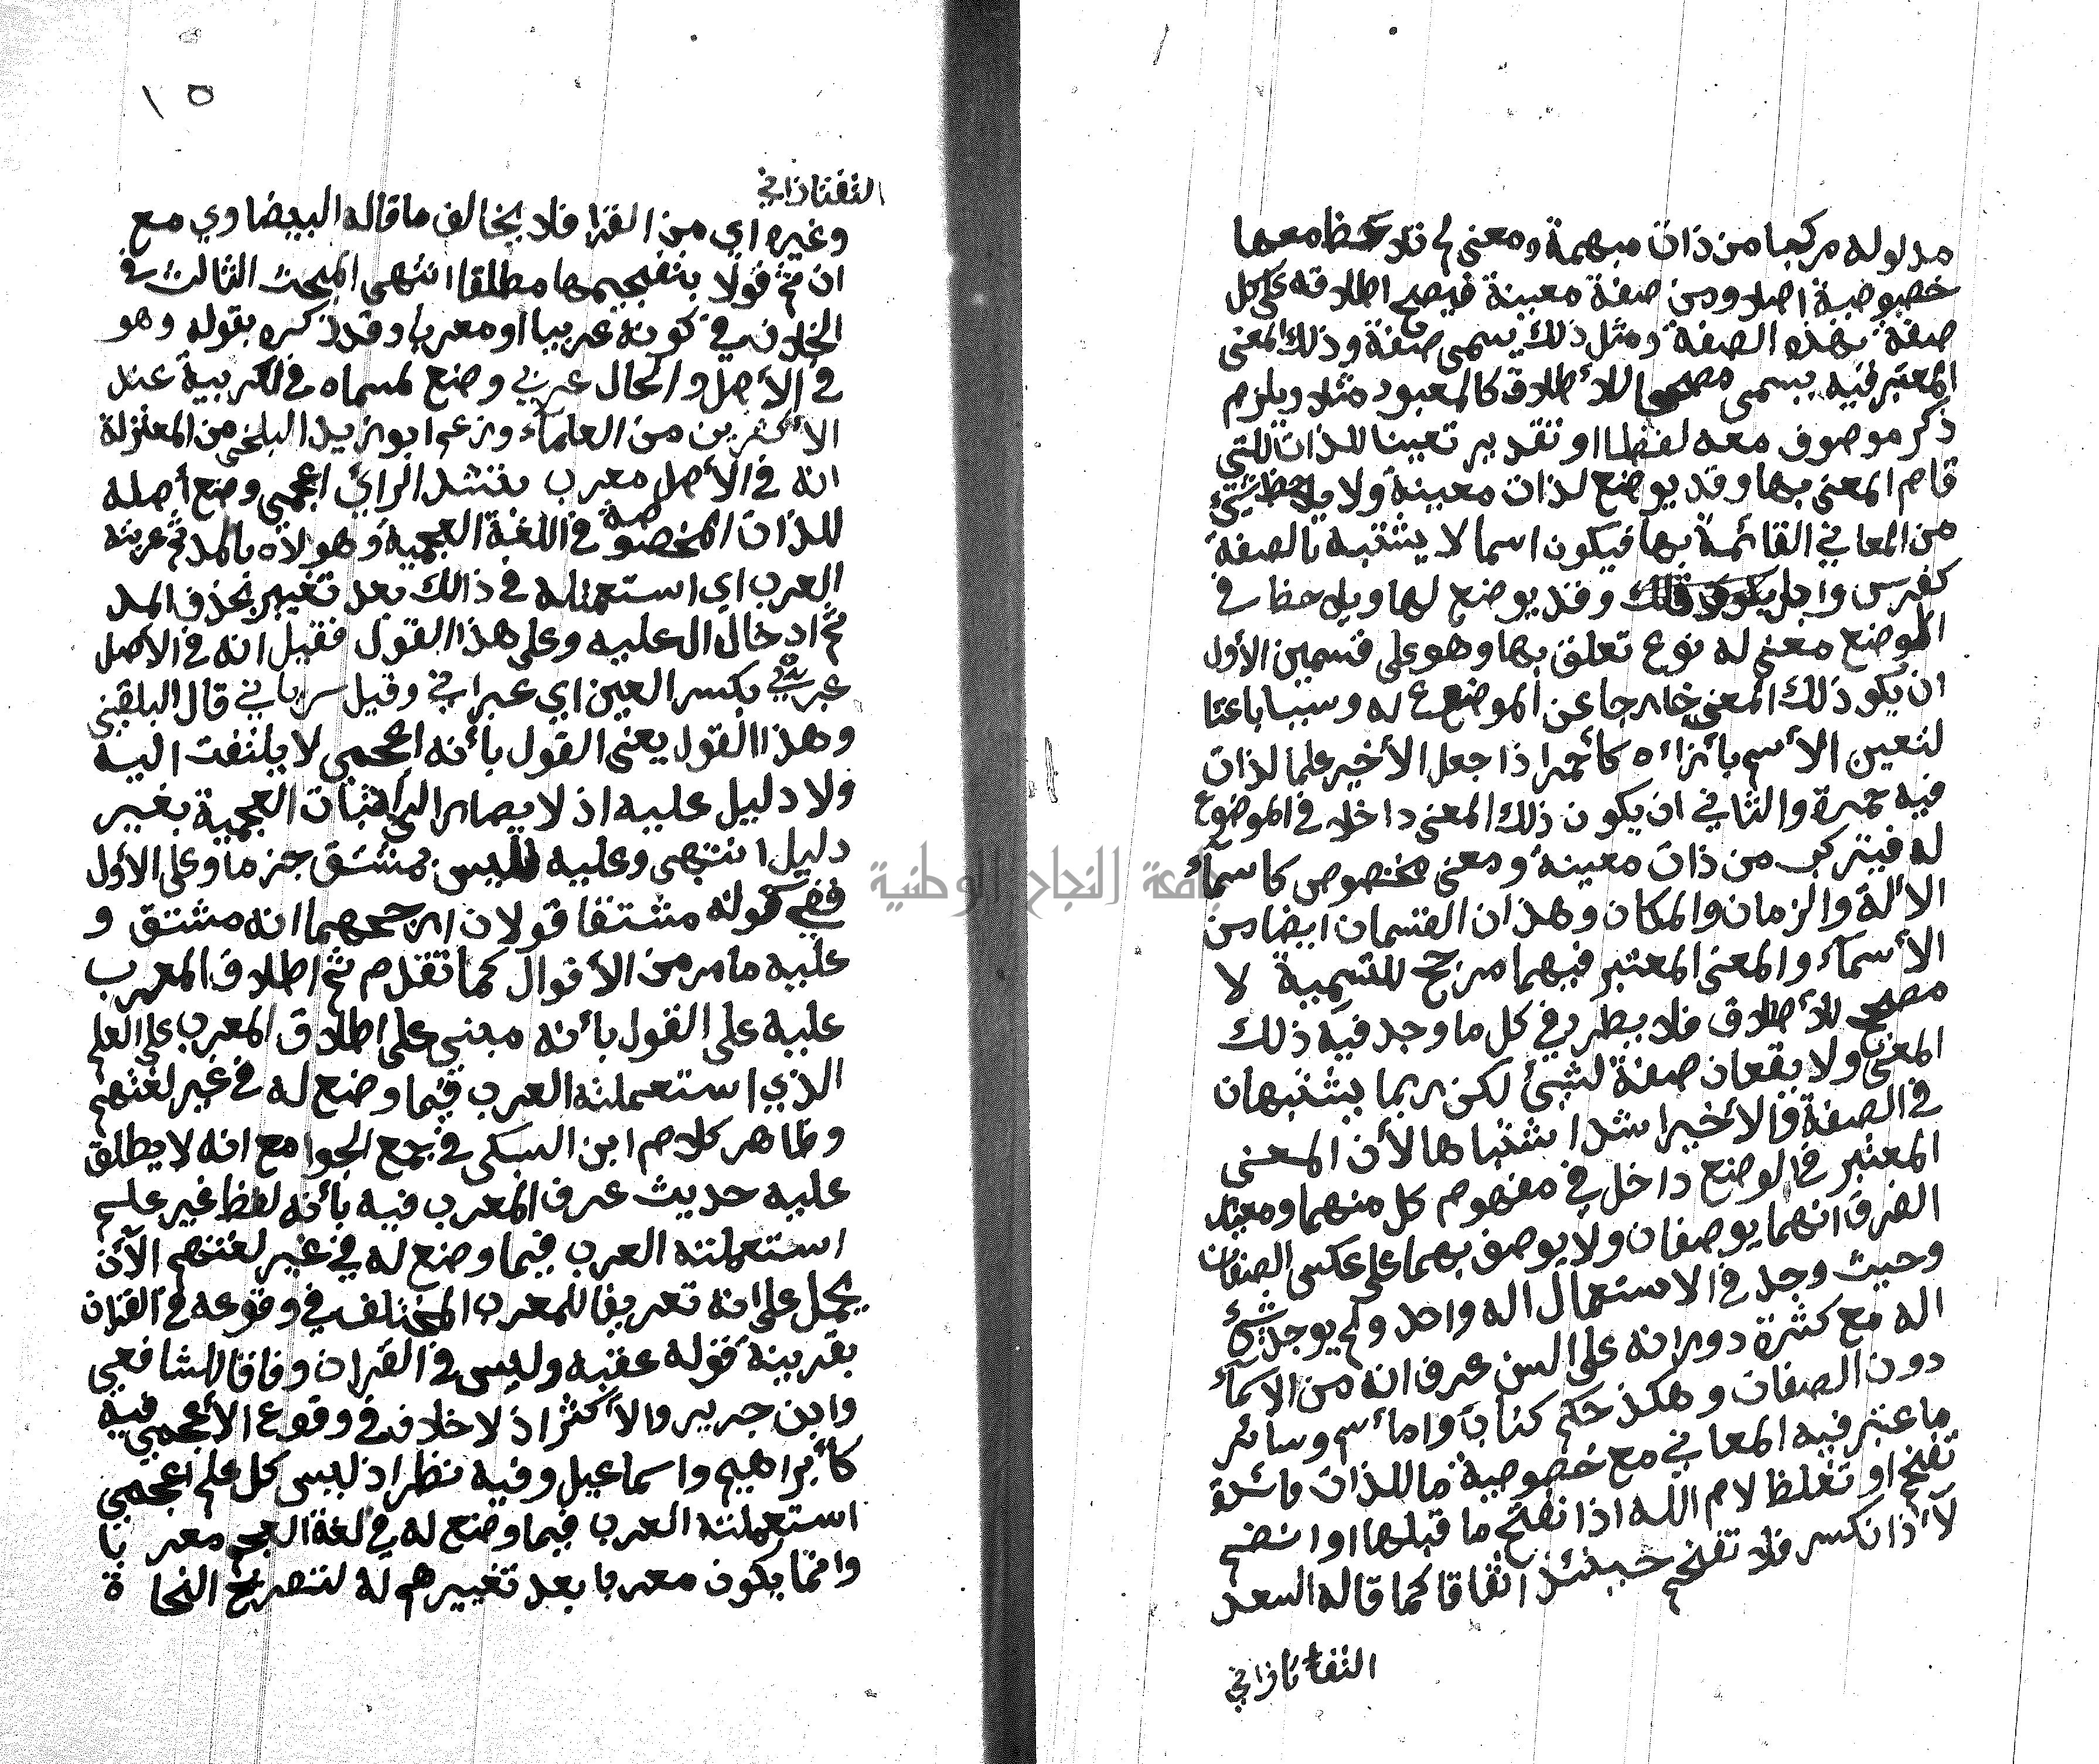 مدلوله مركبا من ذات مبهمة ومعنى لم تلاحظ معها
خصوصية اصلا ومن صفة معينة فيصح اطلاقه على كل
صفة بهذه الصفة ومثل ذلك يسمى صفة وذلك المعنى
المعتبر فيه يسمى مصححا للأطلاق كالمعبود مثلا ويلزم
ذكر موصوف معه لفظا او تقدير تعيينا للذات للتي
قام المعنى بها وقد يوضع لذات معينة ولا يلاحظ شيئ
من المعاني القائمة بها فيكون اسما لا يشتبه بالصفة
كفرس وابل وقد يوضع لها ويلاحظ في
الموضع معنى له نوع تعلق بها وهو على قسمين الأول
ان يكو ذلك المعنى خارجا عن الموضع له وسببا باعثا
لتعين الأسم بأزائه كأحمر اذا جعل الأخير علما لذات
فيه حمرة والثاني ان يكون ذلك المعنى داخلا في الموضوع
له فيتركب من ذات معينة ومعنى مخصوص كاسمآء
الألة والزمان والمكان وهذان القسمان ايضا من
الأسمآء والمعنى المعتبر فيهما مرجح للتسمية لا
مصحح للأطلاق فلا يطرد في كل ما وجد فيه ذلك
المعنى ولا يقعان صفة لشيئ لكن ربما يشتبهان
في الصفة والأخير اشد اشتباها لأن المعنى
المعتبر في الوضع داخل في مفهوم كل منهما ومعيار
الفرق انهما يوصفان ولا يوصف بهما على عكس الصفات
وحيث وجد في الاستعمال اله واحد ولم يوجد شيئ
اله مع كثرة دورانه على السن عرف انه من الاسمآء
دون الصفات وهكذ حكم كتاب وامأم وسائر
ما عتبر فيه المعاني مع خصوصية ما للذات فائدة
تفخم او تغلظ لام الله اذا نفتح ما قبلها او انضم
لاأذا نكسر فلا تفخم حينئذ اتفاقا كما قاله السعد
التفتازاني
١٥
التفتازاني
وغيره اي من القرا فلا يخالف ما قاله البيضاوي مع
ان ثم قولا بتفخيمها مطلقا انتهى المبحث الثالث في
الخلاف في كونه عربيا او معربا وقد ذكره بقوله وهو
في الأصل والحال عربي وضع لمسماه في العربية عند
الأكثرين من العلمآء وزعم ابو زيد البلخي من المعتزلة
انه في الأصل معرب بتشد الرائ اعجمي وضع أصله
للذات المخصوصة في اللغة العجمية وهو لاه بالمد ثم عربته
العرب اي استعملته في ذالك بعد تغيير بحذف المد
ثم ادخال ال عليه وعلى هذا القول فقيل انه في الاصل
عبري بكسر العين اي عبراني وقيل سرياني قال البلقيني
وهذا القول يعني القول بأنه اعجمي لا يلتفت اليه
ولا دليل عليه اذ لا يصار الى اثبات العجمية بغير
دليل انتهى وعليه فليس بمشتق جزما وعلى الأول
ففي كونه مشتقا قولان ارجحهما انه مشتق و
عليه ما مر من الأقوال كما تقدم ثم اطلاق المعرب
عليه على القول بأنه مبني على اطلاق المعرب على العلم
الذي استعملته العرب فيما وضع له في غير لغتهم
وظاهر كلام ابن السبكي في جمع الجوامع انه لا يطلق
عليه حديث عرف المعرب فيه بأنه لفظ غير علم
استعملته العرب فيما وضع له في غير لغتهم الآأن
يحمل على انه تعريفا للمعرب المختلف في وقوعه في القران
بقرينة قوله عقبه وليس في القران وفاقا للشافعي
وابن جرير والأكثر اذ لا خلاف في وقوع الأعجمي فيه
كأبراهيم واسماعيل وفيه نظر اذ ليس كل علم اعجمي
استعملته العرب فيما وضع له في لغة العجم معربا
وانما يكون معربا بعد تغييرهم له لتصريح النحاة
جامعة النجاح الوطنية